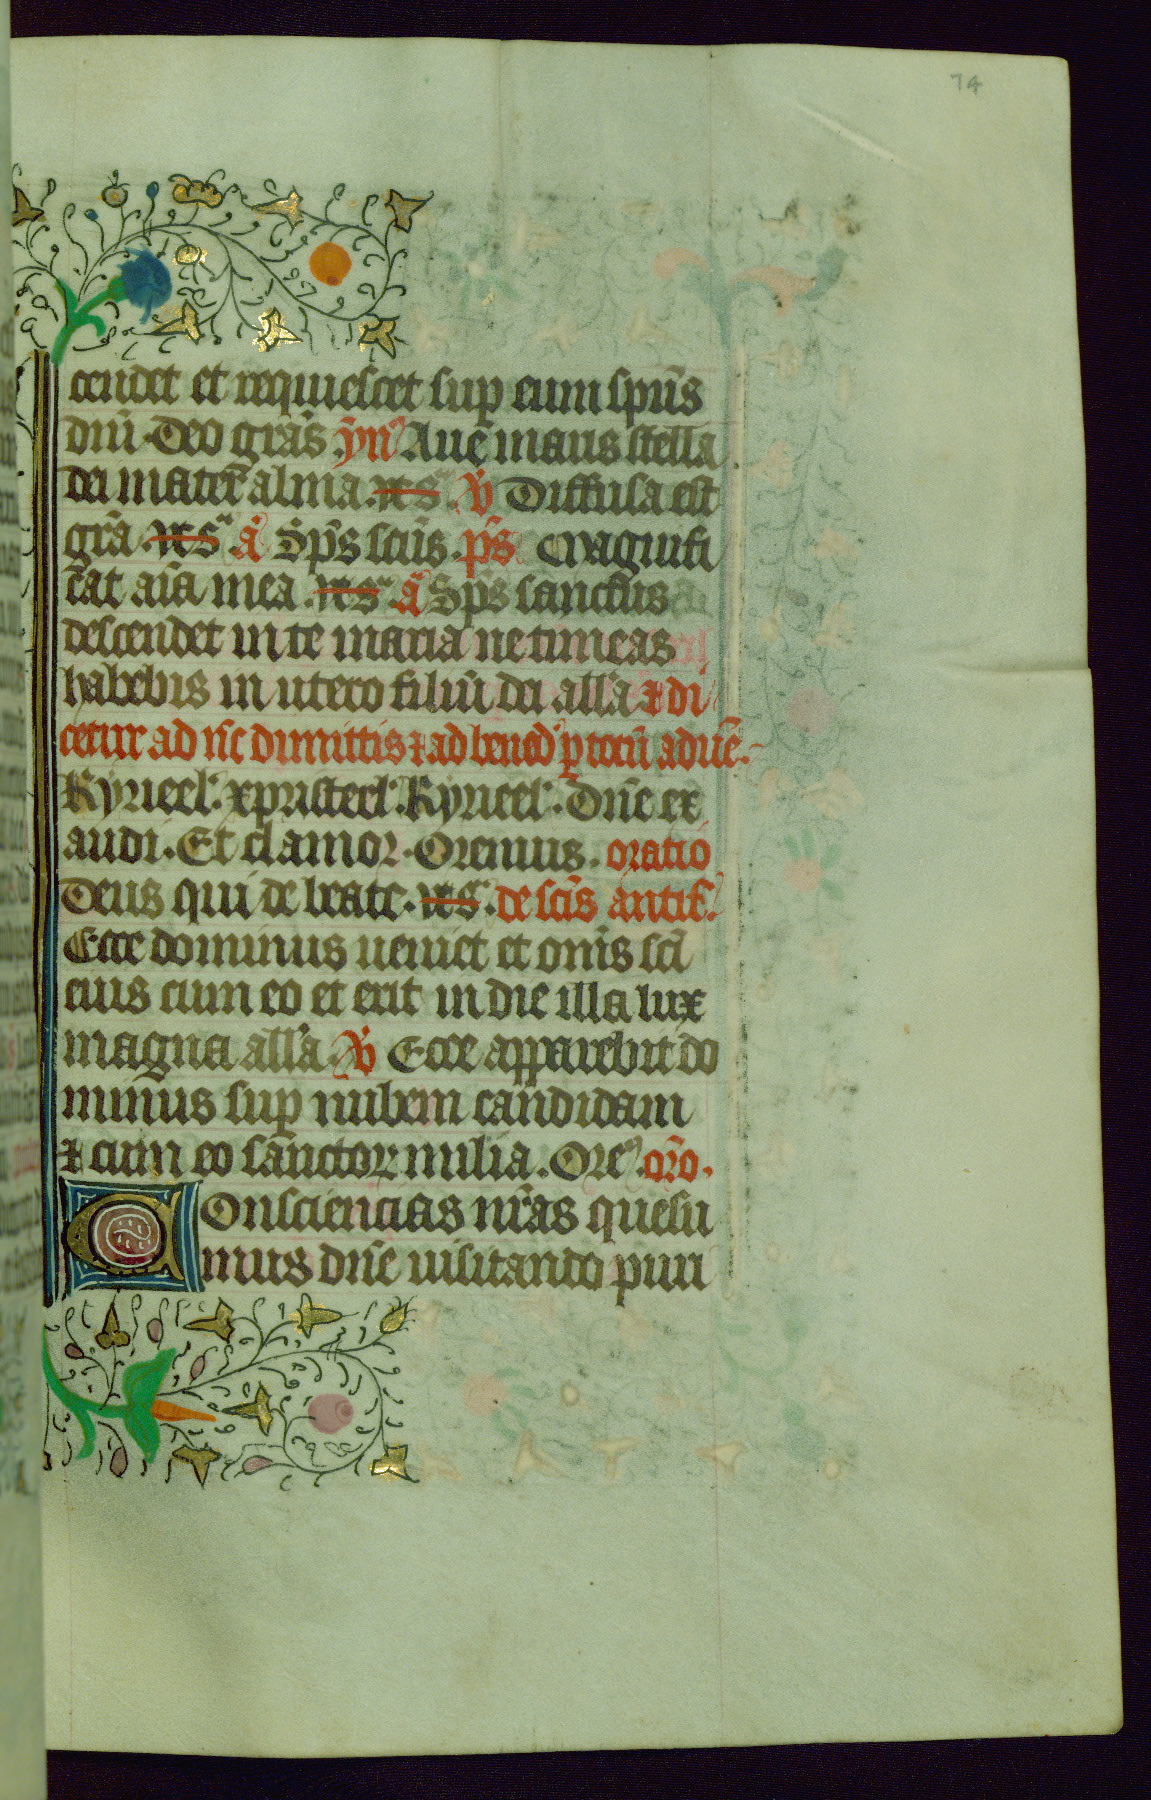 74
cendet et requiescet sup eum spūs
dnī. Deo grās ȳn Aue maris stella
dei mater alma. ℣ Diffusa est
grā. ā Sp̄s scūs. p̄s Magnifi
cat aīa mea. ā Sp̄s sanctus
descendet in te maria ne timeas
habebis in utero filiū dei all'a ⁊ di
cetur ad nc̄ dimittis ⁊ ad bened' p totū aduē.
Kyrieel'. xpristeel'. Kyrieel'. Dn̄e ex
audi. Et clamor. Oremus. oratio
Deus qui de beate. de sc̄is antif.
Ecce dominus ueniet et om̄s sc̄i
eius cum eo et erit in die illa lux
magna all'a ℣ Ecce apparebit do
minus sup nubem candidam
⁊ cum eo sanctoꝝ milia. Ore'. or̄o.
Consciencias nr̄as quesu
mus dn̄e uisitando puri